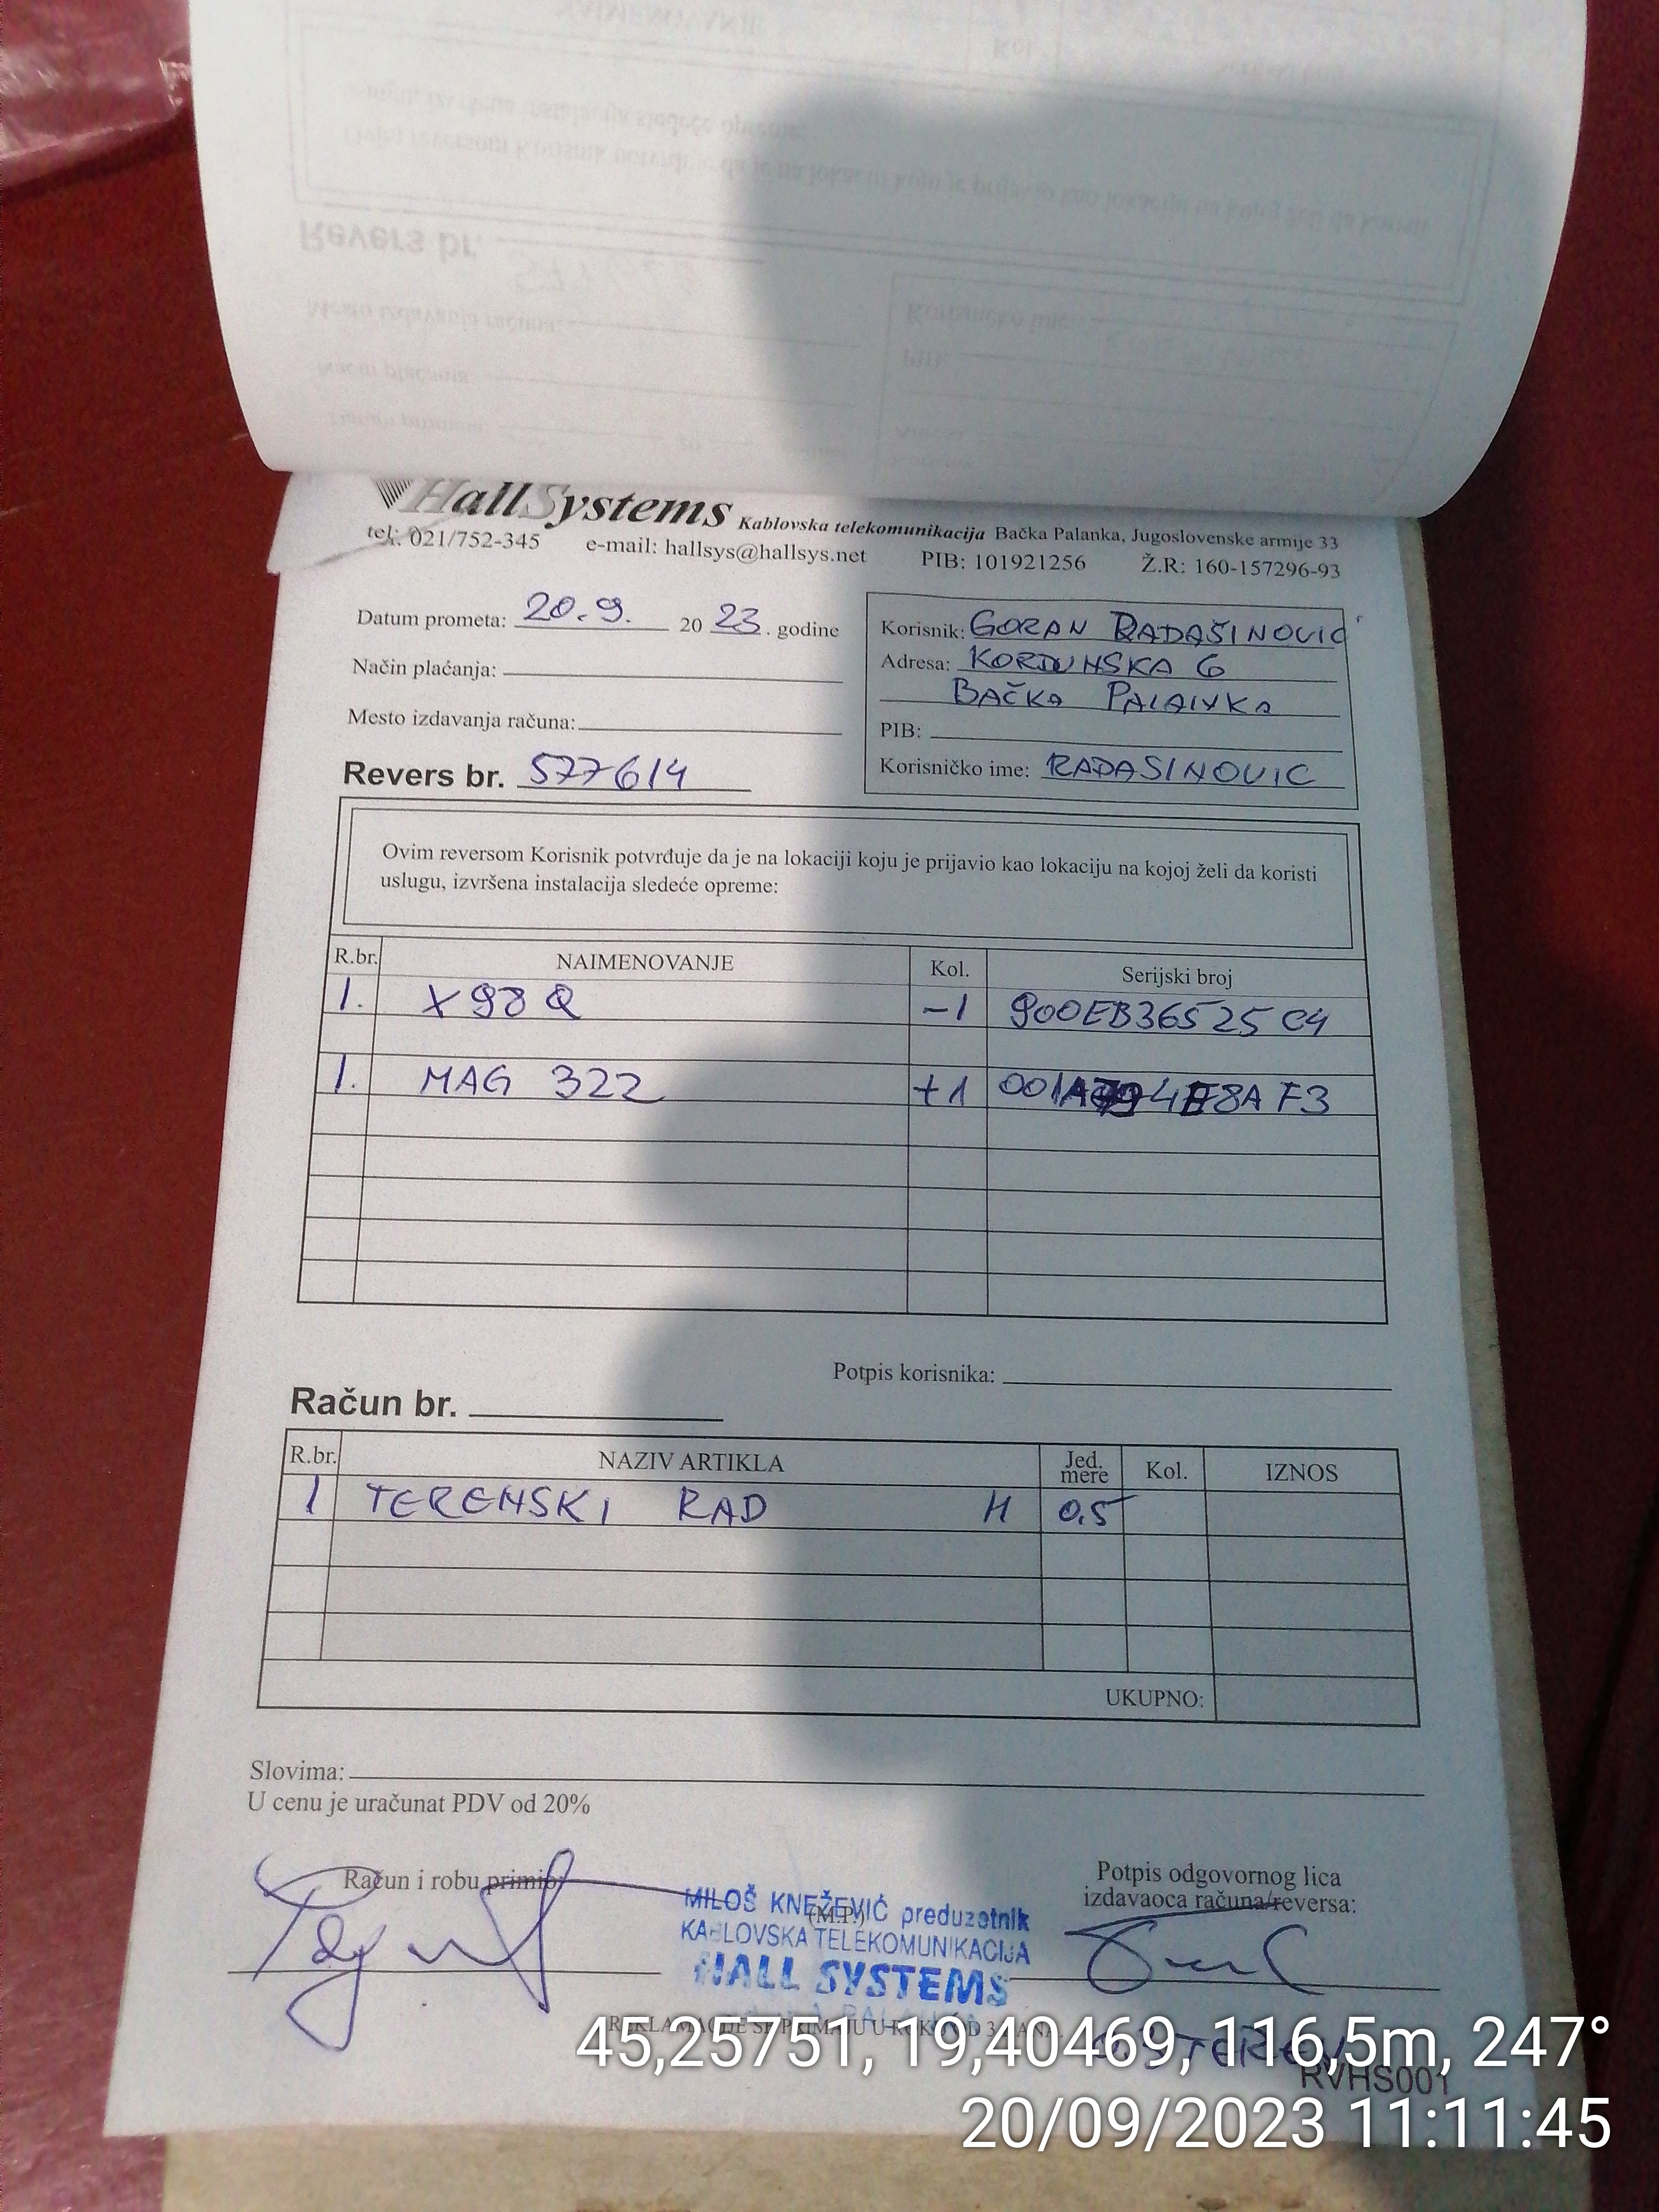 HallSystems Kablovska telekomunikacija Bačka Palanka, Jugoslovenske armije 33
tel: 021/752-345 e-mail: hallsys@hallsys.net PIB: 101921256 Ž.R: 160-157296-93
Datum prometa: 20.9. 20 23. godine
Način plaćanja:
Mesto izdavanja računa:
Revers br. 577614
Korisnik: GORAN RADAŠINOVIĆ
Adresa: KORDUNSKA 6
BAČKA PALANKA
PIB:
Korisničko ime: RADASINOVIC
Ovim reversom Korisnik potvrđuje da je na lokaciji koju je prijavio kao lokaciju na kojoj želi da koristi
uslugu, izvršena instalacija sledeće opreme:
R.br. NAIMENOVANJE Kol. Serijski broj
1. X98Q -1 900EB36525C4
1. MAG 322 +1
Potpis korisnika:
Račun br.
R.br. NAZIV ARTIKLA Jed. mere Kol. IZNOS
1 TERENSKI RAD H 0,5
UKUPNO:
Slovima:
U cenu je uračunat PDV od 20%
Račun i robu primio:
(M.P.)
Potpis odgovornog lica
izdavaoca računa/reversa:
MILOŠ KNEŽEVIĆ preduzetnik
KABLOVSKA TELEKOMUNIKACIJA
HALL SYSTEMS
REKLAMACIJE SE PRIMAJU U ROKU OD 3 DANA
TEREN
RVHS001
45,25751, 19,40469, 116,5m, 247°
20/09/2023 11:11:45